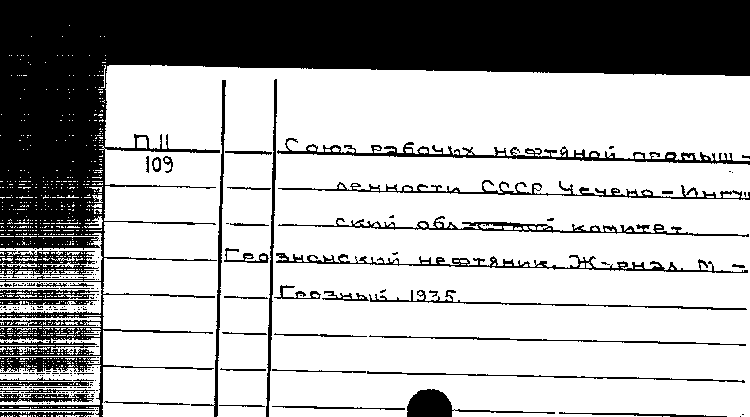 П II
109
Союз рабочих нефтяной промыш-
ленности СССР. Чечено-Ингуш
ский областной комитет.
Грозненский нефтяник. Журнал. М. -
Грозный. 1935.